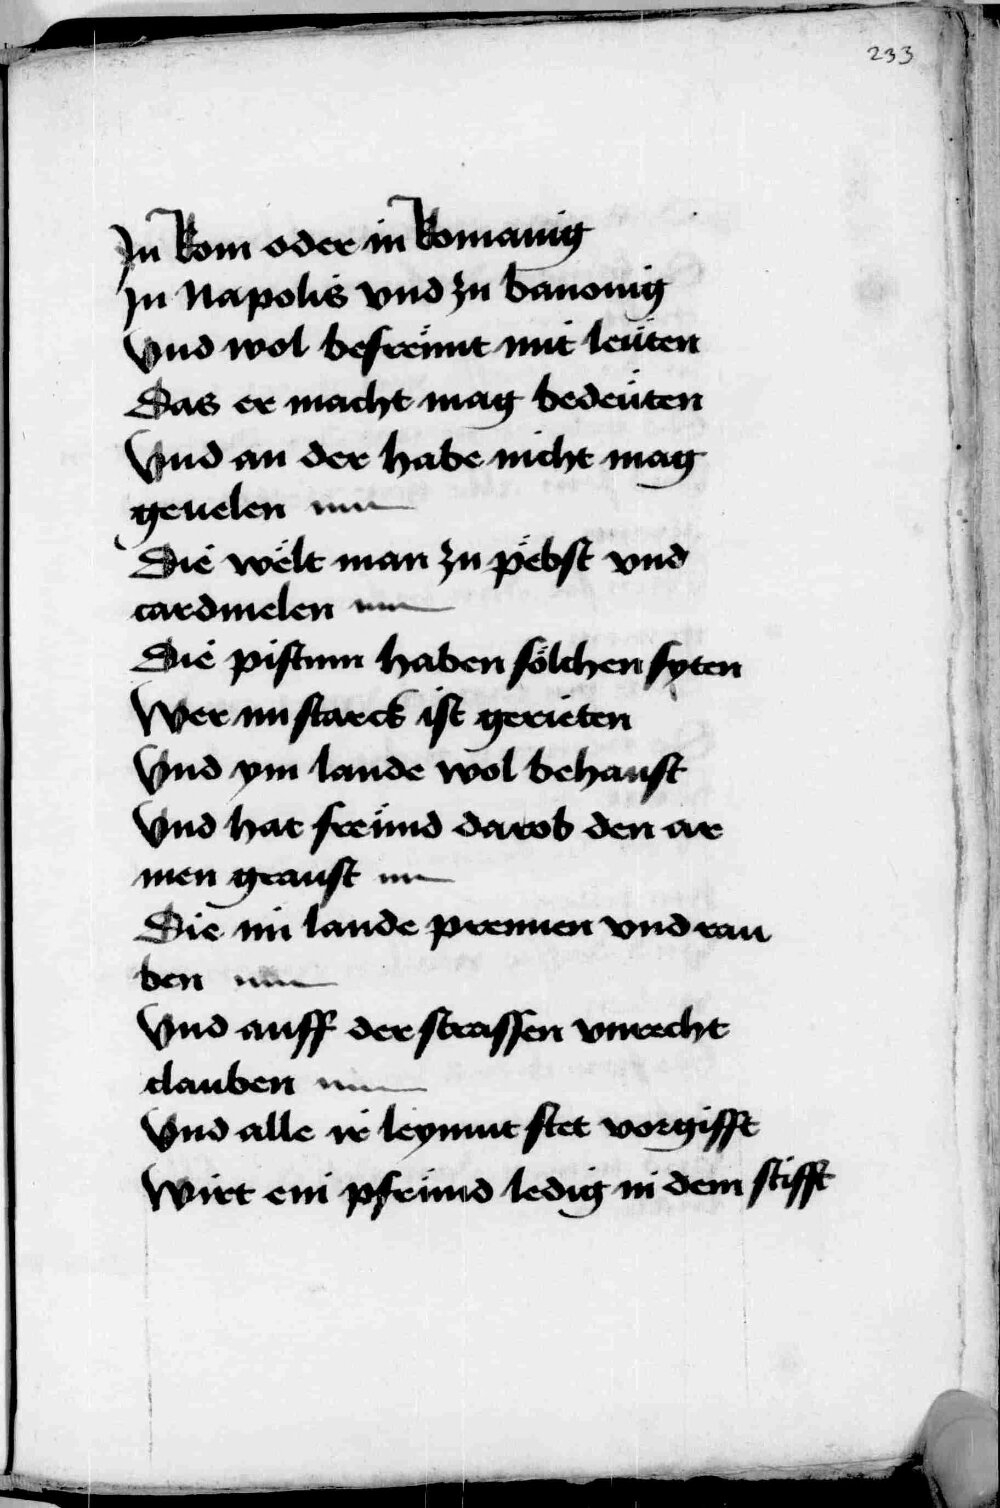 233
Jn Rom oder in Romanig
Jn Napolis vnd zu banonig
Vnd wol befreünt mit leüten
Das er macht mag bedeüten
Vnd an der habe nicht mag
geuelen
Die wëlt man zu pëbst vnd
cardinelen
Die pistum haben sölchen syten
Wer nu starck ist gerieten
Vnd ym lande wol behaust
Vnd hat freünd darob den ar
men graust
Die im lande prennen vnd rau
ben
Vnd auff der strassen vnrecht
clauben
Vnd alle ir leymut stet vorgifft
Wirt ein pfreünd ledig in dem stifft